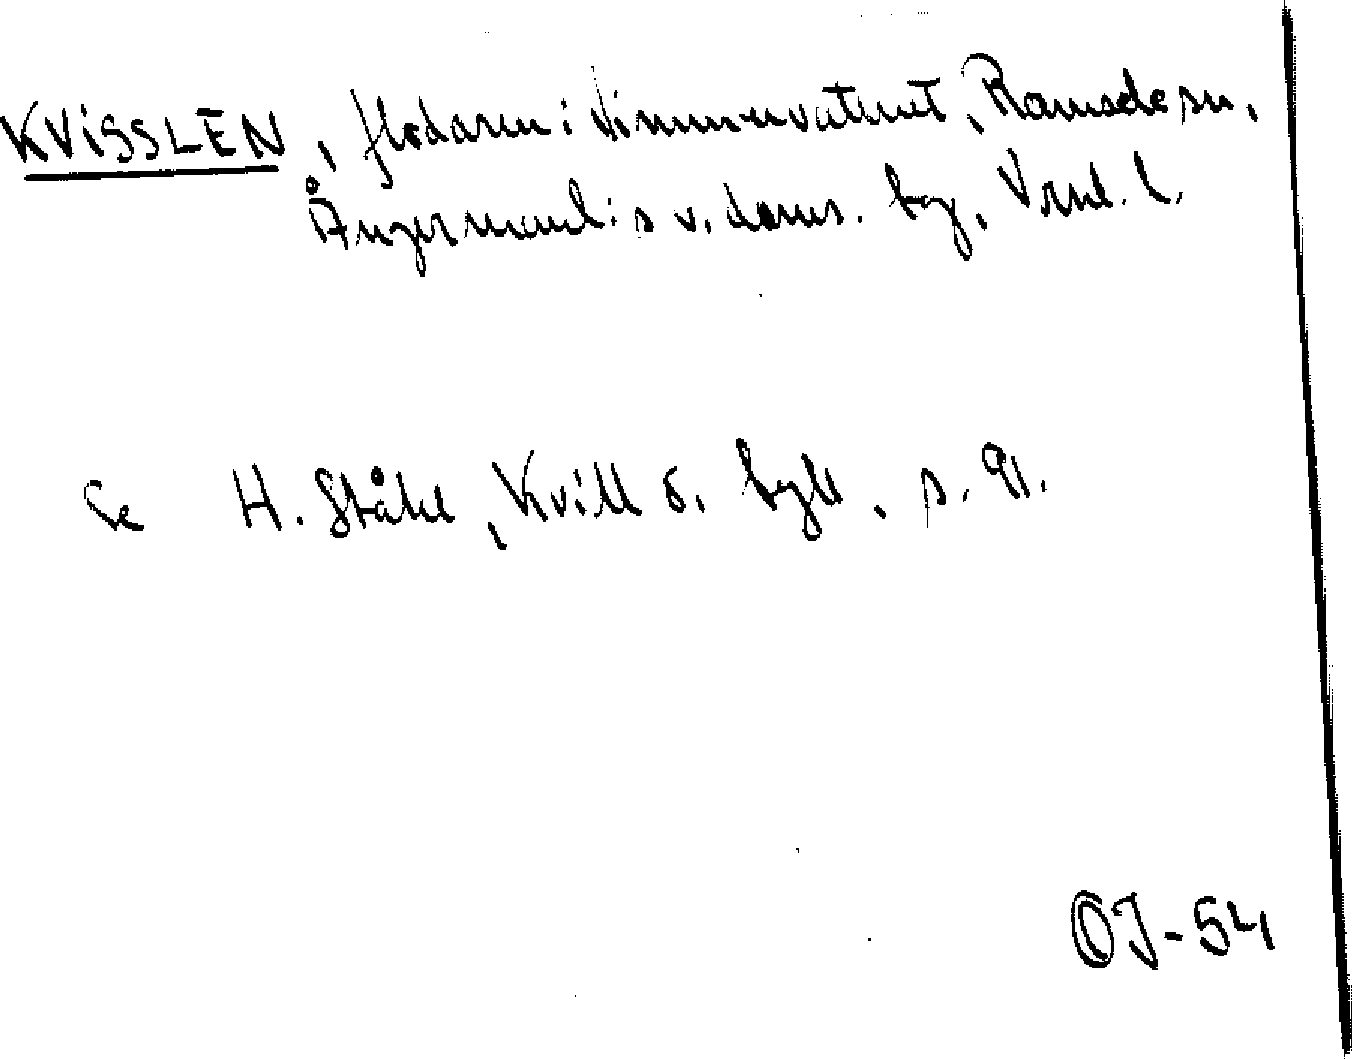 KVISSLEN, flodarm i Vimmervattnet, Ramsele sn,
Ångermanl:s v. doms. bg, Vrnl. l.
Se H. Ståhl, Kvill o. kyll, s. 91.
OJ-54